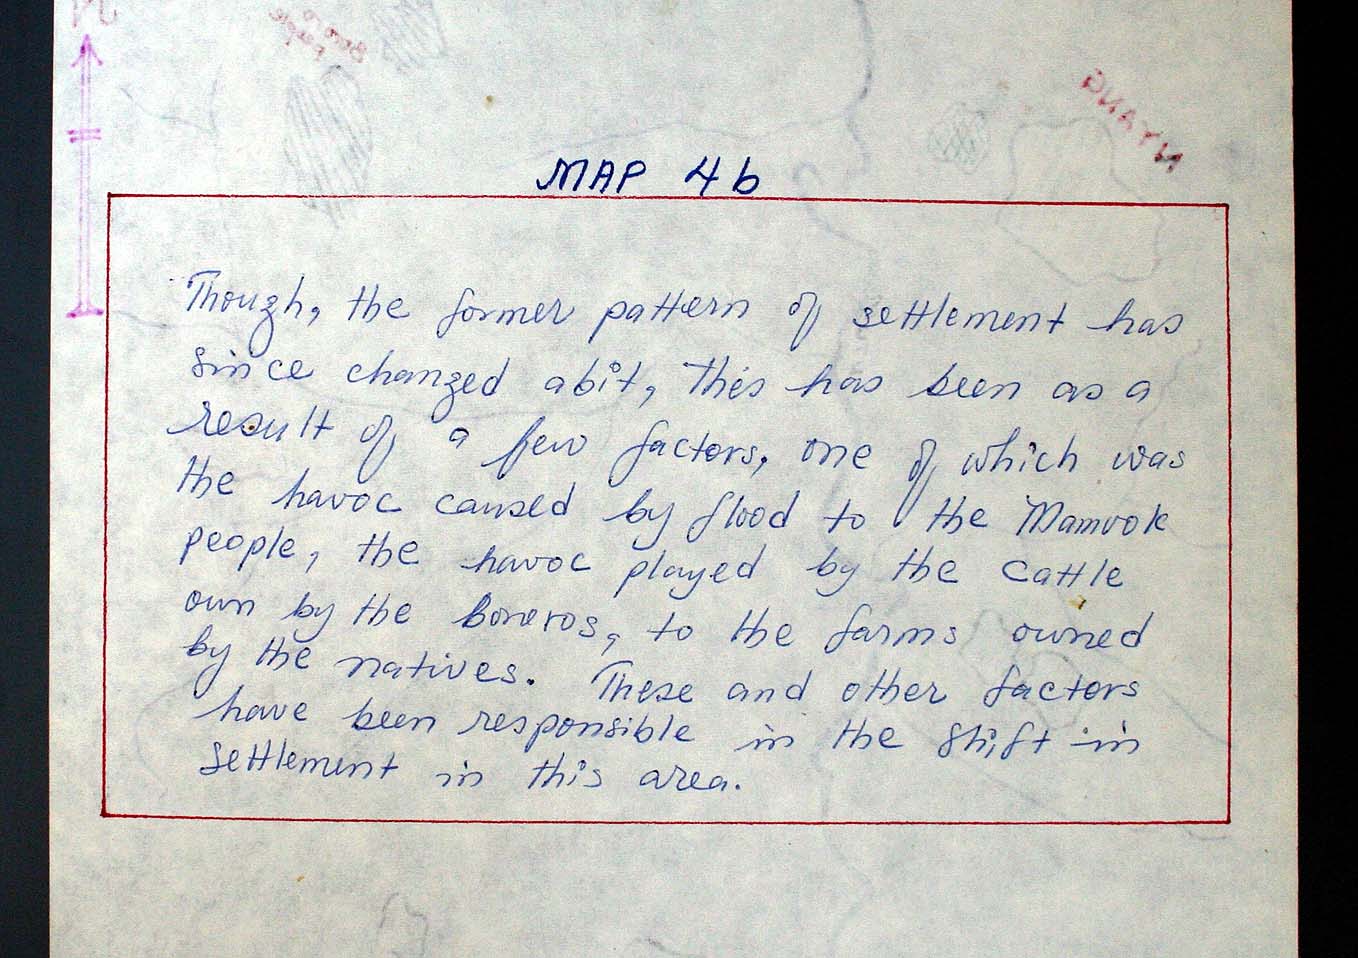 MAP 4b
Though, the former pattern of settlement has
since changed abit, this has been as a
result of a few factors, one of which was
the havoc caused by flood to the Mamvok
people, the havoc played by the cattle
own by the bororos, to the farms owned
by the natives. These and other factors
have been responsible in the shift in
settlement in this area.
NYANG